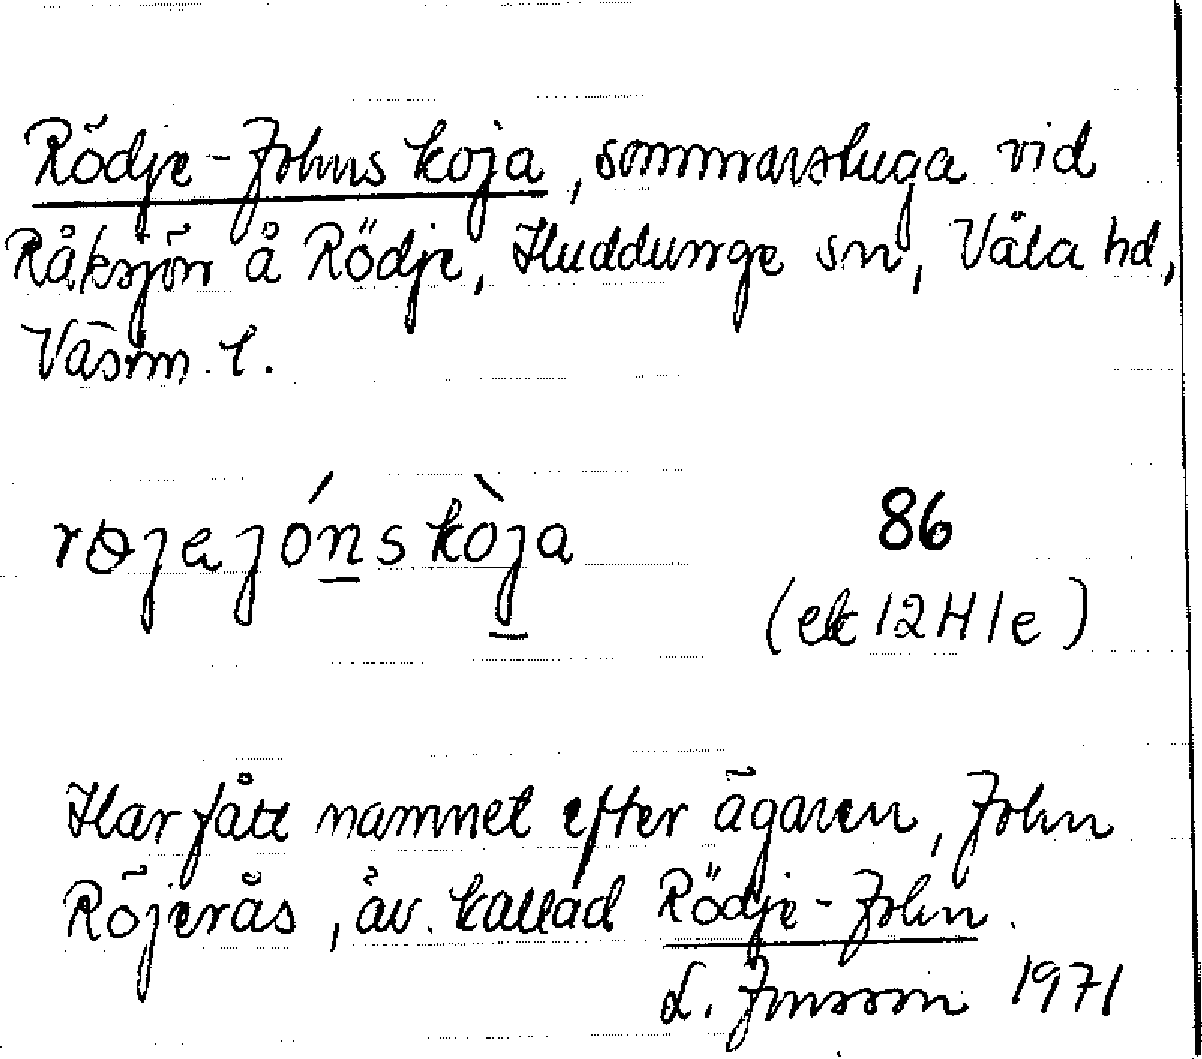 Rödje-Johns koja, sommarstuga vid
Råksjön å Rödje, Huddunge sn, Våla hd,
Västm. l.
røjejónskòja 86
(ek 12H1e)
Har fått namnet efter ägaren, John
Röjerås, äv. kallad Rödje-John.
L. Jonsson 1971